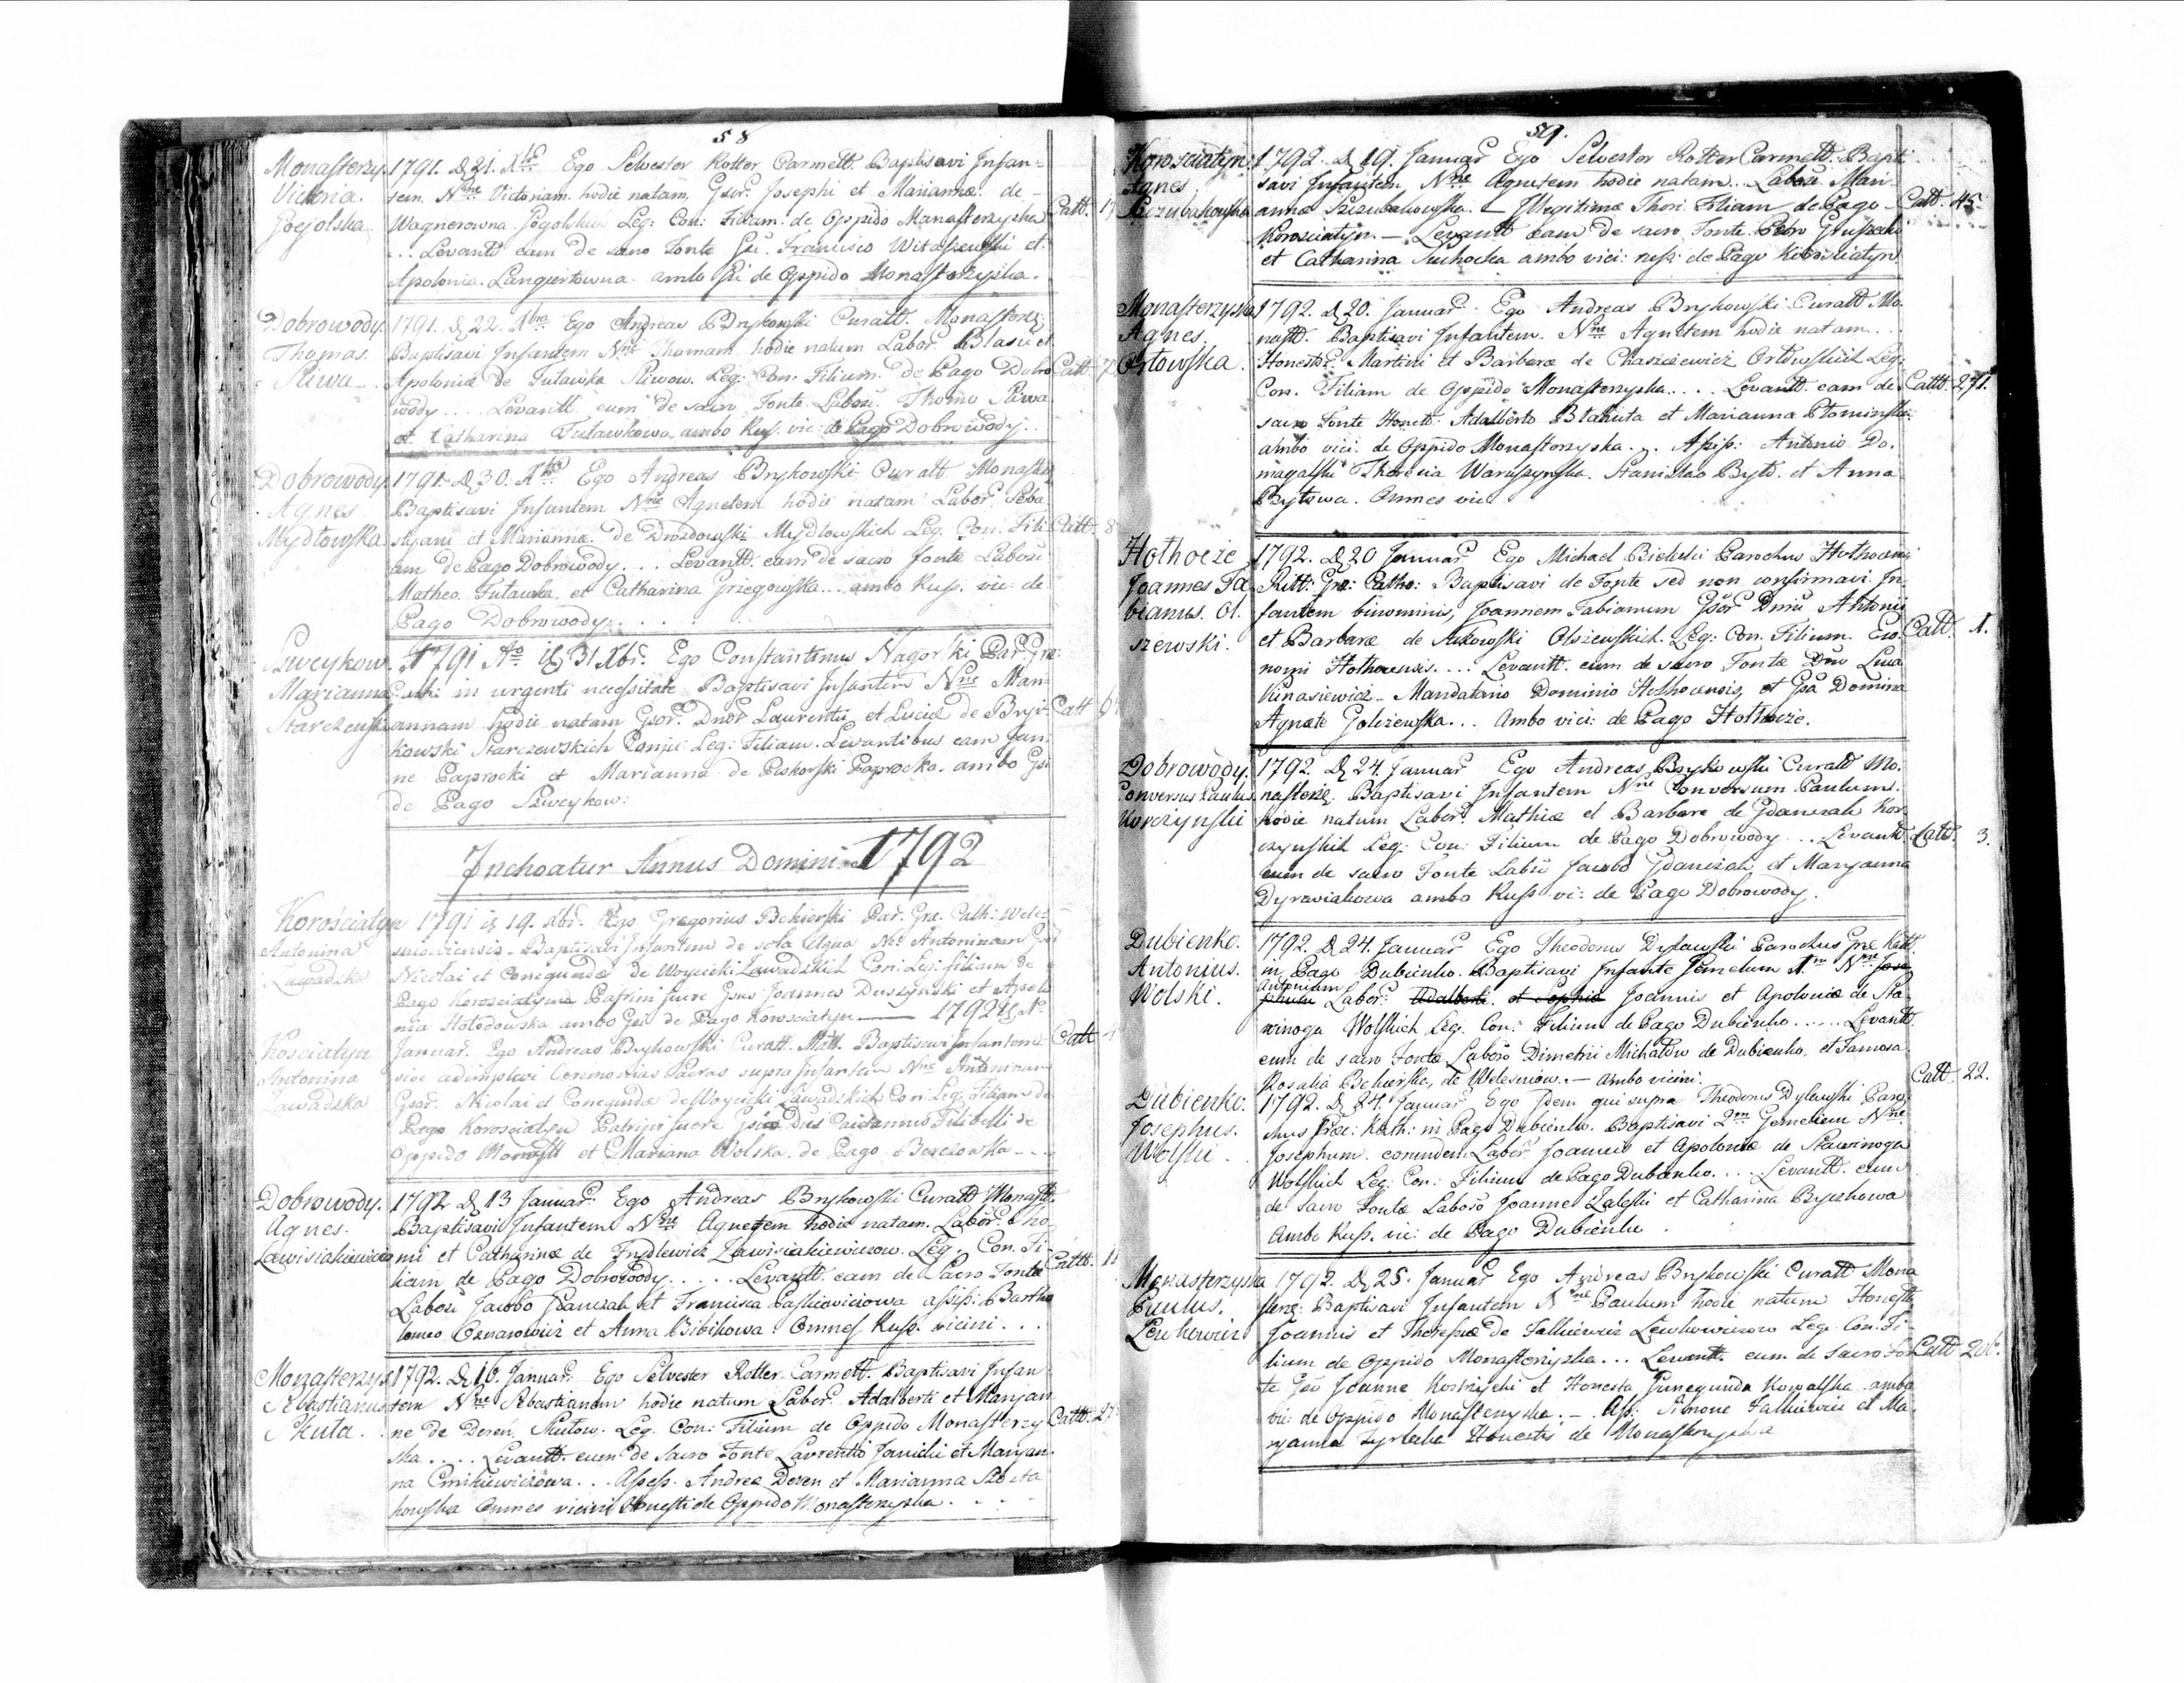 58
Monasterzy. 1791. d. 21. Xbr. Ego Selvester Rotter Carmelt. Baptisavi Infan=
Victoria. tem Nne Victoriam hodie natam, Gsor. Josephi et Mariannæ de
Wagnerowna Leg: Con: Filiam de Oppido Monasterzyska Catt. 17
... Levantt eam de sacro Fonte Gsi. Francisco et
Apolonia Langiertowna ambo Gsi de Oppido Monasterzyska.
Dobrowody. 1791. d. 22. Xbr. Ego Andreas Brykowski Curatt. Monasterz:
Thomas. Baptisavi Infantem Nne Thomam hodie natum Labor. Blasii et
Sliwa Apoloniæ de Futawska Leg: Con: Filium de Pago Dobro Catt. 7
wody .... Levantt. eum de sacro Fonte Labori. Thoma Sliwa
et Catharina Futawkowa ambo Rus. vic: de Pago Dobrowody..
Dobrowody. 1791. d. 30. Xbr. Ego Andreas Brykowski Curatt Monast
Agnes Baptisavi Infantem Nne Agnetem hodie natam Labor. Seba
Mydłowska styani et Mariannæ de Drozdowski Mydłowskich Leg. Con. Fili Catt. 8
am de Pago Dobrowody ... Levantt. eam de sacro fonte Labori
Matheo Futawka, et Catharina Grzegowska ... ambo Rus. vic: de
Pago Dobrowody. . . .
Szweykow. 1791 Ao d. 31 Xbr. Ego Constantinus Nagorski Par: Græ:
Marianna in urgenti necessitate Baptisavi Infantem Nne Mari
Starczewska annam hodie natam Gsor. Dnor Laurentii et Luciæ de Bryi- Catt
kowski Starczewskich Conju: Leg: Filiam. Levantibus eam
Paprocki et Marianna de Piskorski Paprocka. ambo Gsi
de Pago Szweykow:
Inchoatur Annus Domini 1792
Korościatyn 1791 d. 19. Xbr. Ego Gregorius Bekierski Par. Græ. Cath: Wele=
Antonina sniowiensis. Baptisavi Infantem de sola Aqua Ne Antoninam Gsor
Zawadska Nicolai et Conegundæ de Woycicki Zawadzkich Con: Leg: filiam de
Pago Korosciatyna Patrini fuere Gsus Joannes Duszynski et Apolo
nia Hołodowska ambo Gsi de Pago Korosciatyn — 1792
Kosciatyn Januar. Ego Andreas Brykowski Curatt. Baptisavi Infantem Catt
Antonina sive adimplevi Ceremonias Sacras supra Infantem Nne Antoninam
Zawadska Gsor. Nicolai et Conegundæ de Woycicki Zawadzkich Con: Leg: Filiam de
Pago Korosciatyn Patrini fuere Gsus Dus Caietannus Filibelli de
Oppido Monastt et Mariana Wolska de Pago Berezowka
Dobrowody. 1792 d. 13 Januar. Ego Andreas Brykowski Curatt Monastt.
Agnes. Baptisavi Infantem Nne Agnetem hodie natam. Labor. Tho=
mi et Catharinæ de Frydlewicz Leg. Con. Fi- Cattt. 11
liam de Pago Dobrowody ..... Levantt. eam de Sacro Fonte
Labori Jacobo Gdanczak et Francisca Paszkiewiciowa assis: Bartho
lomeo Oznarowicz et Anna Bibikowa: Omnes Rus. vicini...
Monasterzys. 1792. d. 16. Januar. Ego Selvester Rotter Carmelt. Baptisavi Infan
Sebastianus tem Nne Sebastianum hodie natum Labor. Adalberti et Maryan
Skuta. ne de Dereń, Skutow. Leg. Con: Filium de Oppido Monasterzy Cattt. 27
ska .... Levantt. eum de Sacro Fonte Laurentio Janicki et Maryan
na Cmikiewiczowa... Assess. Andrea Deren et Marianna
kowska Omnes vicini Honesti de Oppido Monasterzyska...
59.
Korosciatyn. 1792. d. 19. Januar Ego Selvester Rotter Carmelt. Bapti
Agnes savi Infantem Nne Agnetem hodie natam. Labori Mari
Szczubakowska annæ Szczubakowska — Illegitimæ Thori Filiam de Pago Catt. 45
Korosciatyn. — Levantt eam de sacro Fonte Petro Gruszecki
et Catharina Suchocka ambo vici: nessi: de Pago Korosciatyn
Monasterzyska 1792. d. 20. Januar. Ego Andreas Bryskowski Curatt Mo.
Agnes. nastt. Baptisavi Infantem. Nne Agnetem hodie natam...
Orłowska. Honestor. Martini et Barbaræ de Chaszczewicz Orłowskich Leg:
Con. Filiam de Oppido Monasterzyska.... Levantt. eam de Cattt. 271.
sacro Fonte Honesto: Adalberto Blakuta et Marianna Słominska
ambo vici: de Oppido Monasterzyska.. Assis: Antonio Do.
magalski Theresia Waruszynska. Stanislao Byto. et Anna
Bytowa. Omnes vici
Hołhocze 1792. d. 20 Januar Ego Michael Bielski Parochus Hołhocensi
Joannes Fa Ritt: Græ: Catho: Baptisavi de Fonte sed non confirmavi In
bianus. Ol. fantem binominis, Joannem Fabianum Gsor Dnni Antonii
szewski. et Barbaræ de Olszewskich. Leg: Con. Filium. Eco Catt. 1.
nomi Hołhocensis.... Levantt. eum de sacro Fonte Dno Luca
Kunasiewicz Mandatario Dominio Hołhocensis, et Gsa Domina
Agnete Golizewska... ambo vici: de Pago Hołhocze.
Dobrowody. 1792. d. 24. Januar Ego Andreas Bryskowski Curatt Mo.
Conversus Paulus nasterz. Baptisavi Infantem Nne Conversum Paulum.
Korczynski hodie natum Labor. Mathiæ et Barbare de Gdanczak Kor
czynskich Leg: Con: Filium de Pago Dobrowody... Levantt. Catt. 3.
eum de sacro Fonte Labri Jacobo Gdanczak, et Maryanna
Dyrawiakowa ambo Russ. vi: de Pago Dobrowody.
Dubienko. 1792. d. 24. Januar Ego Theodorus Dylawski Parochus Græ Katt.
Antonius. in Pago Dubienko. Baptisavi Infante Gemelum 1m Nne Jose
Wolski. Antonium phum Labor: Adalberti et Sophiæ Joannis et Apoloniæ de Sta
winoga Wolskich Leg. Con: Filium de Pago Dubienko..... Levantt
eum de sacro Fonte Laboro Dimetrii Michałow de Dubienko, et Famosa
Rosalia Bekierska, de Welesniow. — ambo vicini. Catt. 22.
Dubienko. 1792. d. 24. Januar Ego Idem qui supra Theodorus Dylewski Paro
Josephus. chus Græ: Kath: in Pago Dubienko. Baptisavi 2m Gemelum Nne
Wolski. Josephum. eorundem Labor Joannis et Apoloniæ de Stawinoga
Wolskich Leg: Con: Filium de Pago Dubienko.... Levantt. eum
de sacro Fonte Laboro Joanne Zaleski et Catharina Byczkowa
Ambo Rus. vic: de Pago Dubienko.
Monasterzyska 1792. d. 25. Januar Ego Andreas Bryskowski Curatt Mona
Paulus. sterz: Baptisavi Infantem Nne Paulum hodie natum Honestt
Lewkowicz Joannis et Theresiæ de Falkiewicz Lewkowiczow Leg. Con. Fi-
lium de Oppido Monasterzyska... Levantt. eum. de Sacro Fon Catt 206.
te Gsi Joanne Kostrzycki et Honesta Cunegunda Kowalska ambo
vic: de Oppido Monasterzyska. — Ass: Simone Falkiewicz et Ma
ryanna Honestis de Monasterzyska